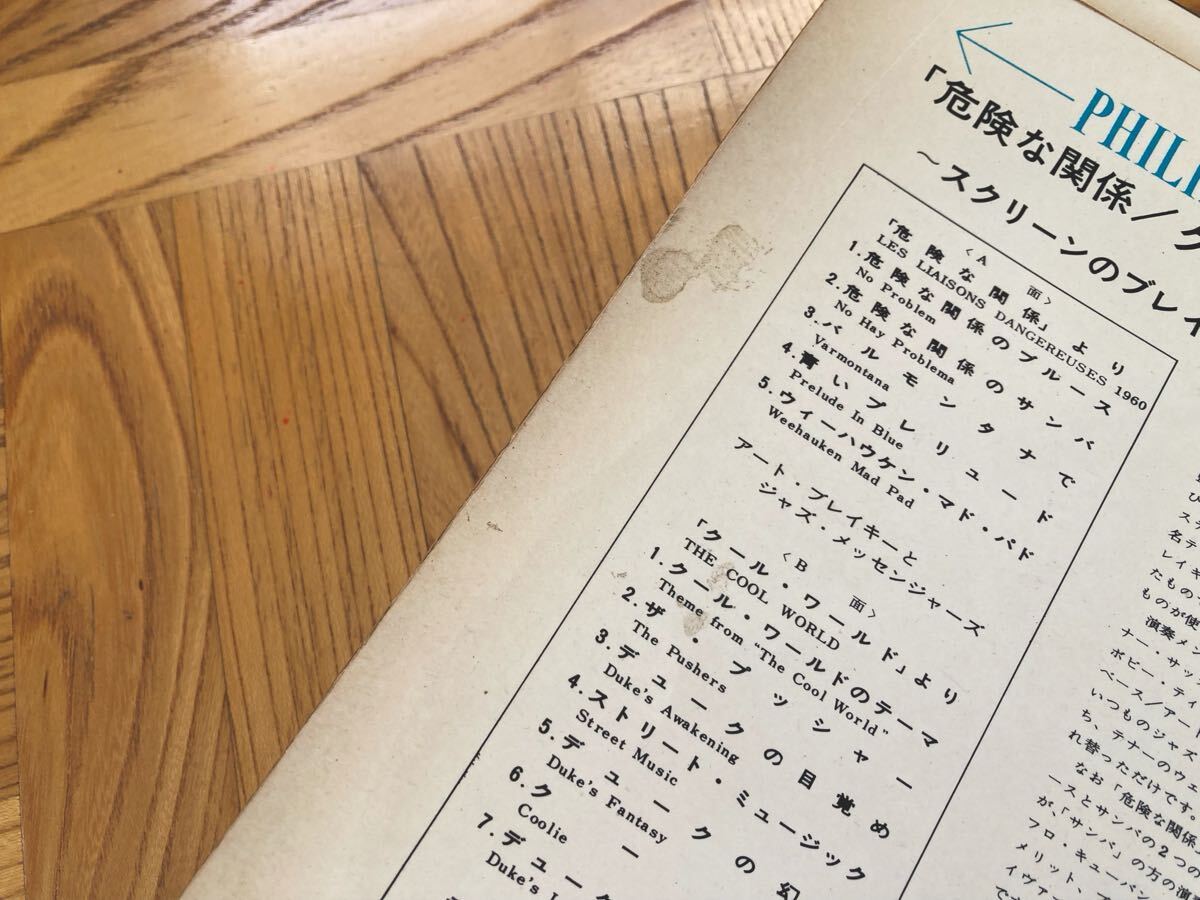 PHILI
「危険な関係／ク
～スクリーンのブレイ
〈A 面〉
「危険な関係」より
LES LIAISONS DANGEREUSES 1960
1. 危険な関係のブルース
No Problem
2. 危険な関係のサンバ
No Hay Problema
3. バルモンタナで
Varmontana
4. 青いプレリュード
Prelude In Blue
5. ウイーハウケン・マド・パド
Weehauken Mad Pad
アート・ブレイキーと
ジャズ・メッセンジャーズ
〈B 面〉
「クール・ワールド」より
THE COOL WORLD
1. クール・ワールドのテーマ
Theme from "The Cool World"
2. ザ・プッシャー
The Pushers
3. デュークの目覚め
Duke's Awakening
4. ストリート・ミュージック
Street Music
5. デュークの幻
Duke's Fantasy
6. クー
Coolie
7. デューク
Duke's
び
ステ
名テ
レイキ
たもの
ものが使
演奏メン
ナー・サッ
ボビー・ティ
ベース／アート
いつものジャズ
ち、テナーのウェ
れ替っただけです。
なお「危険な関係」
ースとサンバの2つの
が、「サンバ」の方の演
フロ・キューバン
メリット、プ
イヴァ
で